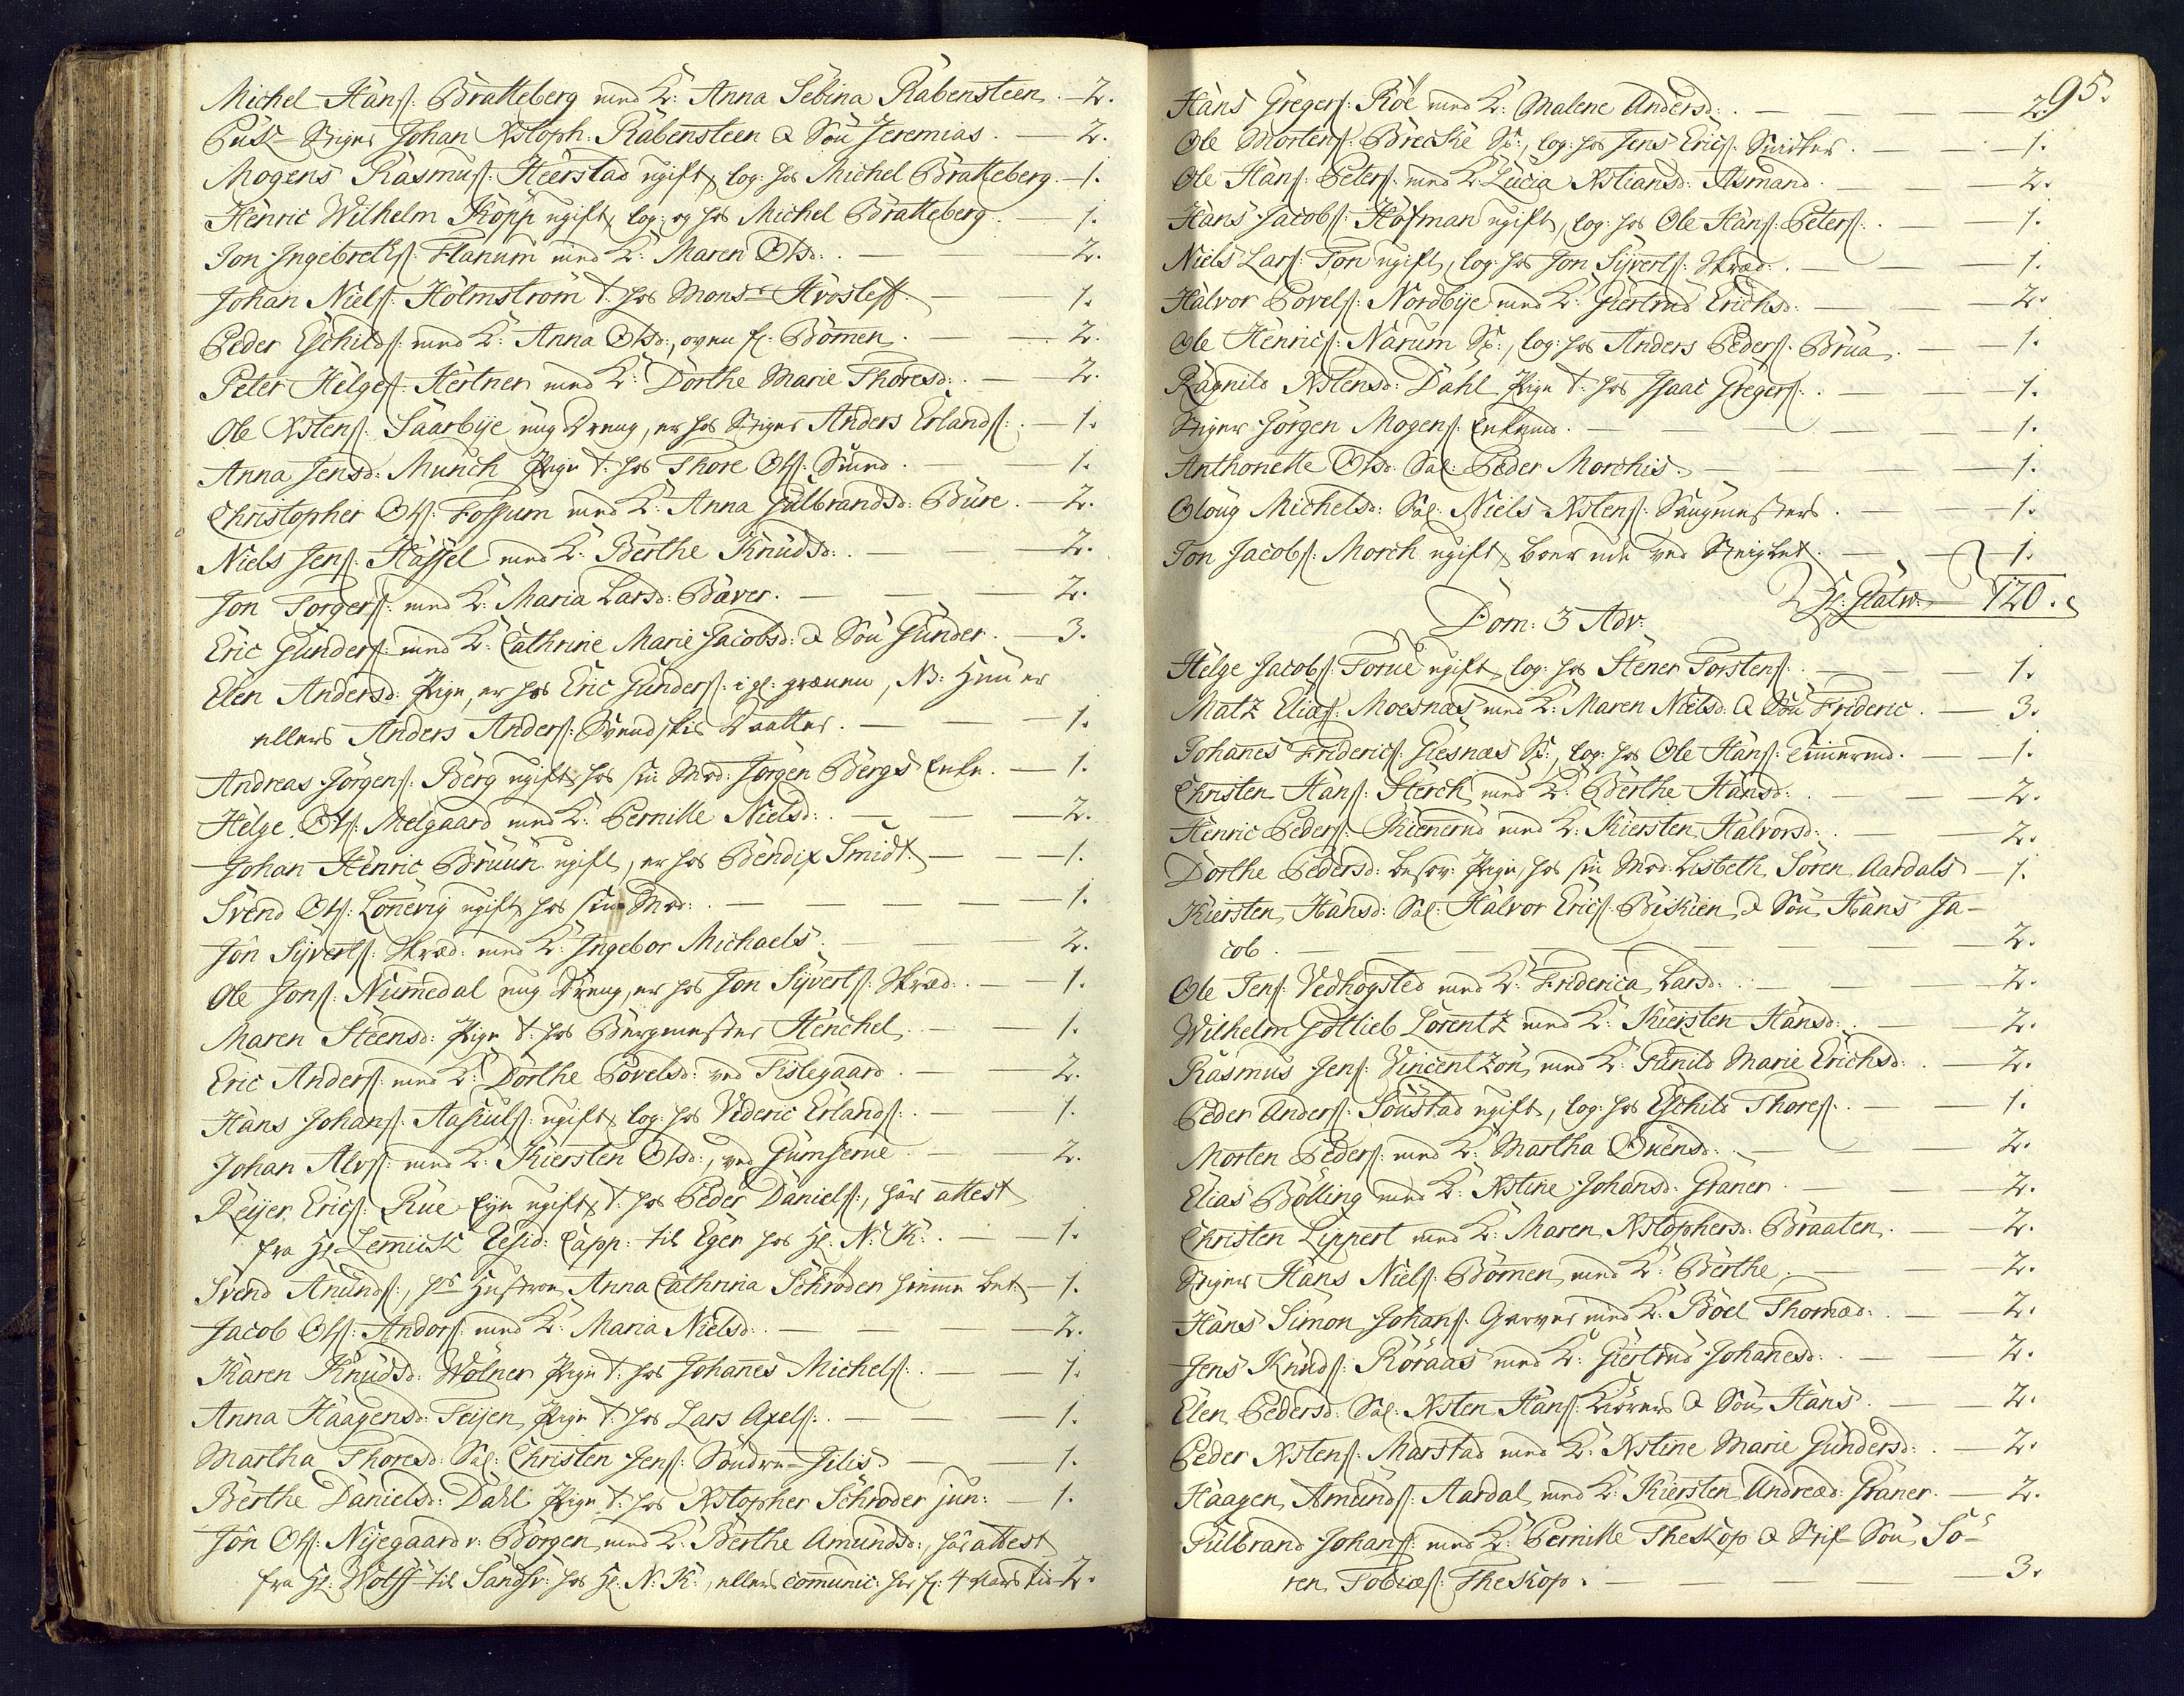 Michel Hansß: Bratteberg med K: Anna Sebina Rabensteen. — 2.
Puk-Stiger Johan Xstoph: Rabensteen & Søn Jeremias. — 2.
Mogens Rasmusß: Heerstad ugift, log: hos Michel Bratteberg. — 1.
Henric Wilhelm Kopp ugift, log: og hos Michel Bratteberg. — 1.
Jon Ingebrethß: Flanum med K: Maren Olsd: — 2.
Johan Nielß: Holmstrøm t: hos Monsr Hvosleff. — 1.
Peder Eschildß: med K: Anna Olsd:, oven f: Bommen. — 2.
Peter Helgeß: Hertner med K: Dorthe Marie Thoresd: — 2.
Ole Xstenß: Saarbye ung Dreng, er hos Stiger Anders Erlandß: — 1.
Anna Jensd: Munch Pige t: hos Thore Olß: Smed. — 1.
Christopher Olß: Fossum med K: Anna Gulbrandsd: Bure. — 2.
Niels Jenß: Hassel med K: Berthe Knudsd: — 2.
Jon Torgerß: med K: Maria Larsd: Baver. — 2.
Eric Gunderß: med K: Cathrine Marie Jacobsd: & Søn Gunder. — 3.
Elen Andersd: Pige, er hos Eric Gunderß: i gl: grænen, NB: Hun er
ellers Anders Anderß: Svendskis Daatter. — 1.
Andreas Jørgenß: Berg ugift, hos sin Mod: Jørgen Bergs Enke. — 1.
Helge Olß: Melgaard med K: Pernille Nielsd: — 2.
Johan Henric Bruun ugift, er hos Bendix Smidt. — 1.
Svend Olß: Lonevig ugift, hos sin Mod: — 1.
Jon Syvertß: Skræd: med K: Ingebor Michaels. — 2.
Ole Jonß: Numedal ung Dreng, er hos Jon Syvertß: Skræd: — 1.
Maren Steensd: Pige t: hos Burgemester Henchel. — 1.
Eric Anderß: med K: Dorthe Povelsd: ved Tislegaard. — 2.
Hans Johanß: Aasiulß: ugift, log: hos Videric Erlandß: — 1.
Johan Alvß: med K: Kiersten Olsd:, ved Gumserne. — 2.
Reijer Ericß: Rue Eger ugift, t: hos Peder Danielß:, har attest
fra Hr Lemmick Resid: Capp: til Eger hos Hr: N: K: — 1.
Svend Anundß:, hs Hustroe Anna Cathrina Schrøder hiemme bet: — 1.
Jacob Olß: Andorß: med K: Maria Nielsd: — 2.
Karen Knudsd: Wolner Pige t: hos Johanes Michelß: — 1.
Anna Haagensd: Teijen Pige t: hos Lars Axelß: — 1.
Martha Thoresd: Sal: Christen Jenß: Søndre-Jilis. — 1.
Berthe Danielsd: Dahl Pige t: hos Xstopher Schrøder jun: — 1.
Jon Olß: Nijegaard v: Borgen, med K: Berthe Amundsd:, har attest
fra Hr: Wolff til Sandsv: hos Hr: N: K:, ellers communic: her f: 4 Aars tid — 2.
95.
Hans Gregerß: Røe med K: Malene Andersd: — 2.
Ole Mortenß: Brecke S:, log: hos Jens Ericß: Snidker. — 1.
Ole Hanß: Peterß: med K: Lucia Xstiansd: Asmand. — 2.
Hans Jacobß: Hofman ugift, log: hos Ole Hanß: Peterß: — 1.
Niels Larß: Ton ugift, log: hos Jon Syvertß: Skræd: — 1.
Halvor Povelß: Nordbije med K: Giertrud Erichsd: — 2.
Ole Henricß: Narum S:, log: hos Anders Pederß: Brua. — 1.
Ragnild Xstensd: Dahl Pige t: hos Isaac Gregerß: — 1.
Stiger Jørgen Mogenß: Enkemd. — 1.
Anthonette Olsd: Sal: Peder Morchis. — 1.
Oloug Michelsd: Sal: Niels Xstenß: Saugmesters. — 1.
Jon Jacobß: Morch ugift, boer ude ved Steiglet. — 1.
Hr: Glatw: — 120.
Dom: 3 Adv:
Helge Jacobß: Torue ugift, log: hos Stener Torstenß: — 1.
Matz Eliaß: Moesnæs med K: Maren Nielsd: & Søn Frideric. — 3.
Johanes Fridericß: Giesnæs S:, log: hos Ole Hanß: Timermd. — 1.
Christen Hanß: Sterch, med K: Berthe Hansd: — 2.
Henric Pederß: Kiænerud med K: Kiersten Halvorsd: — 2.
Dorthe Pedersd: besov: Pige, hos sin Mod: Lisbeth Søren Aardals — 1.
Kiersten Hansd: Sal: Halvor Ericß: Biskien, & Søn Hans Ja-
cob. — 2.
Ole Jenß: Vedhogsted med K: Friderica Larsd: — 2.
Wilhelm Gotlieb Lorentz med K: Kiersten Hansd: — 2.
Rasmus Jenß: Vincentzon, med K: Gunild Marie Erichsd: — 2.
Peder Anderß: Soustad ugift, log: hos Eschild Thoreß: — 1.
Morten Pederß: med K: Martha Ovensd: — 2.
Elias Bølling med K: Xstine Johansd: Graner. — 2.
Christen Lippert med K: Maren Xstophersd: Braaten. — 2.
Stiger Hans Nielß: Bommen, med K: Berthe. — 2.
Hans Simon Johanß: Garver med K: Boel Thomæd: — 2.
Jens Knudß: Røraas med K: Giertrud Johanesd: — 2.
Elen Pedersd: Sal: Xsten Hanß: Kiørers & Søn Hans. — 2.
Peder Xstenß: Marstad med K: Xstine Marie Gundersd: — 2.
Haagen Amundß: Aardal, med K: Kiersten Andreæd: Graner. — 2.
Gulbrand Johanß: med K: Pernille Theskop & Stif-Søn Sø-
ren Tobiæß: Theskop. — 3.